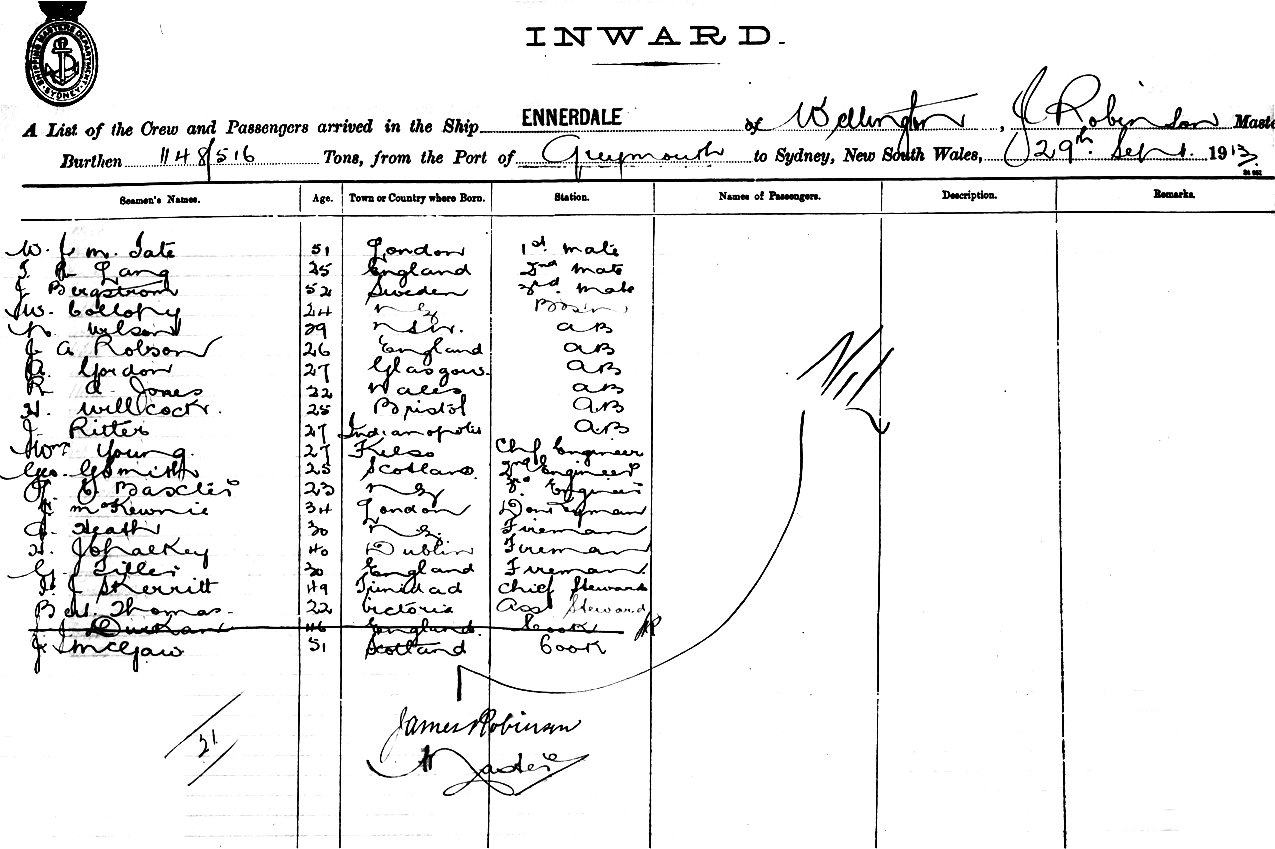 SHIPPING MASTERS DEPARTMENT
SYDNEY
INWARD.
A List of the Crew and Passengers arrived in the Ship ENNERDALE of Wellington, J Robinson Maste
Burthen 1148/516 Tons, from the Port of Greymouth to Sydney, New South Wales, 29th Sept. 1913
Seamen's Names. Age. Town or Country where Born. Station. Names of Passengers. Description. Remarks.
W. J. M. Tate 51 London 1st Mate
Lang 25 England 2nd Mate
J Bergstrom 52 Sweden 3rd Mate
W. Collopy 24 NZ Bosn
Wilson 29 NSW. AB
J. A Robson 26 England AB
A. Gordon 27 Glasgow. AB
R. A. Jones 22 Wales AB
H. Willcock. 25 Bristol AB
J. Ritter 27 Indianapolis AB
Wm Young. 27 Kelso Chf Engineer
Geo. G Smith 25 Scotland. 2nd Engineer
23 NZ 3rd Engineer
J McKewnie 34 London Donkeyman
A. Heath 30 NZ. Fireman
H. 40 Dublin Fireman
G. Tilley 30 England Fireman
J Sherritt 49 Trinidad Chief Steward
Bert. Thomas. 22 Victoria Asst Steward
46 England. Cook JR
J. McGaw 51 Scotland Cook
Nil
21
James Robinson
Master